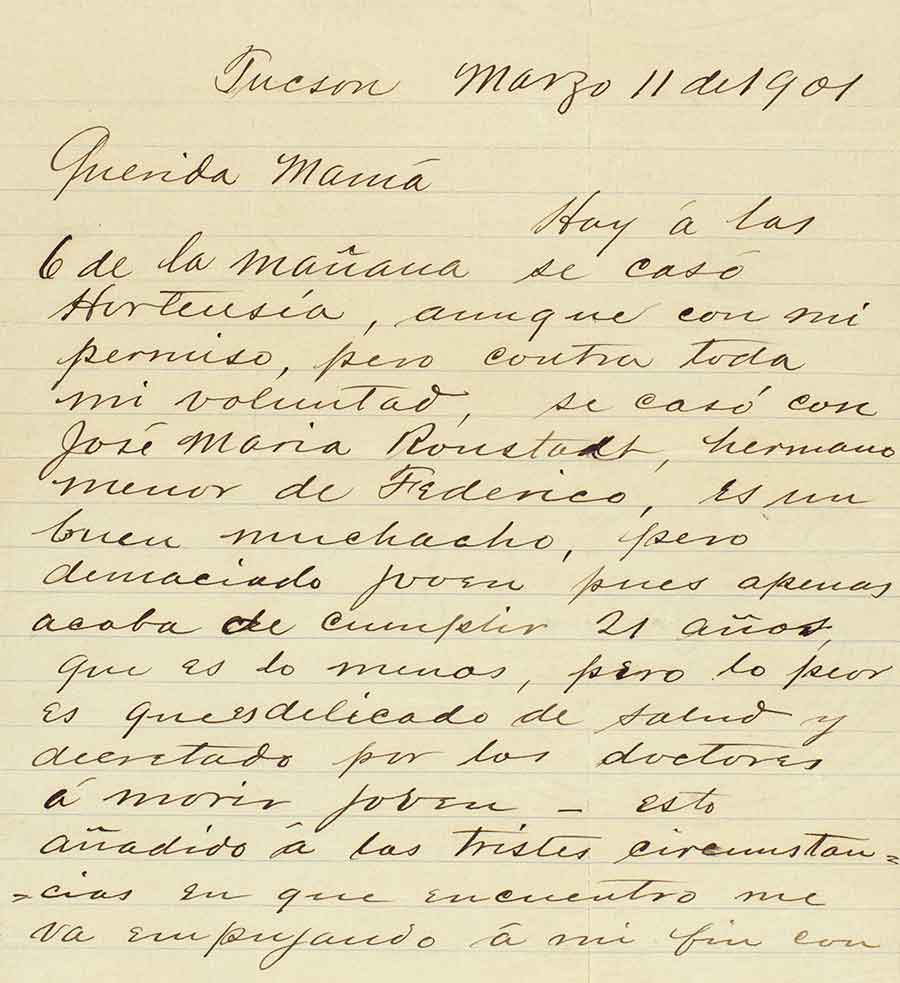 Tucson Marzo 11 de 1901
Querida Mamá
Hoy á las
6 de la mañana se casó
Hortensia, aunque con mi
permiso, pero contra toda
mi voluntad, se casó con
José Maria Ronstadt, hermano
menor de Federico, es un
buen muchacho, pero
demaciado joven pues apenas
acaba de cumplir 21 años,
que es lo menos, pero lo peor
es que es delicado de salud y
decretado por los doctores
á morir joven – esto
añadido á las tristes circunstan=
=cias en que encuentro me
va empujando á mi fin con